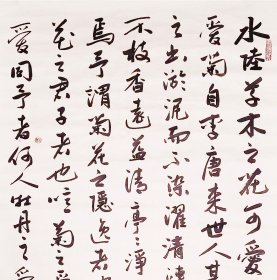 水陸草木之花可愛
愛菊自李唐来世人甚
之出淤泥而不染濯清漣
不枝香遠益清亭亭淨
焉予謂菊花之隱逸者
花之君子者也噫菊之愛
愛同予者何人牡丹之愛